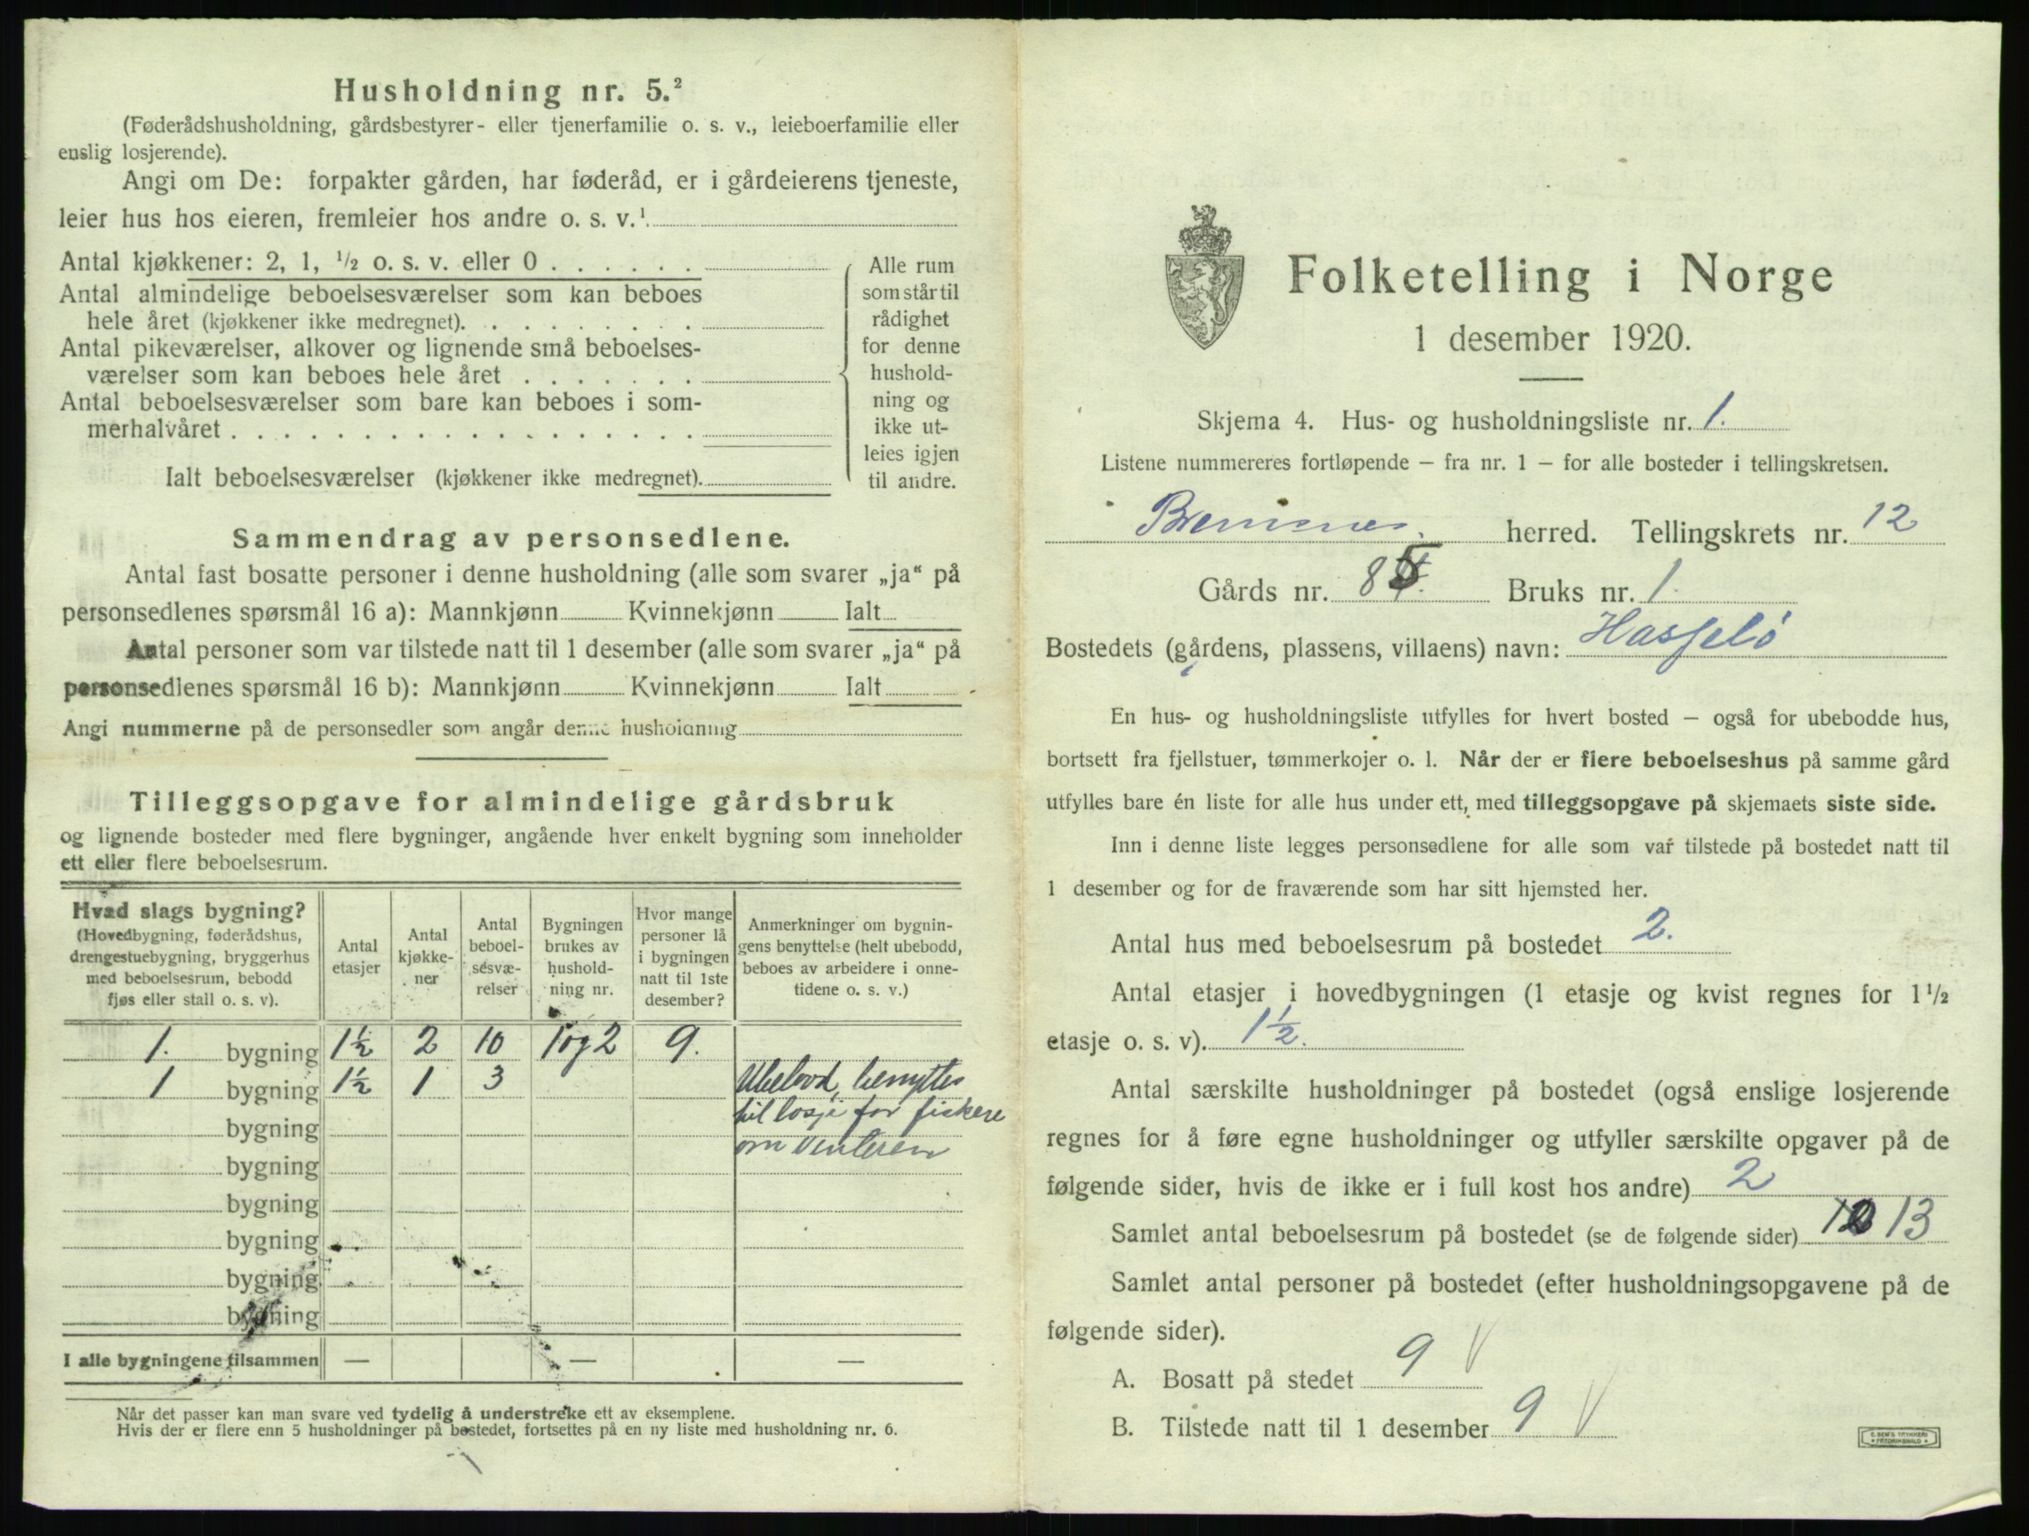 Husholdning nr. 5.²
(Føderådshusholdning, gårdsbestyrer- eller tjenerfamilie o. s. v., leieboerfamilie eller
enslig losjerende).
Angi om De: forpakter gården, har føderåd, er i gårdeierens tjeneste,
leier hus hos eieren, fremleier hos andre o. s. v.¹
Antal kjøkkener: 2, 1, ½ o. s. v. eller 0
Antal almindelige beboelsesværelser som kan beboes
hele året (kjøkkener ikke medregnet).
Antal pikeværelser, alkover og lignende små beboelses-
værelser som kan beboes hele året
Antal beboelsesværelser som bare kan beboes i som-
merhalvåret
Ialt beboelsesværelser (kjøkkener ikke medregnet).
Alle rum
som står til
rådighet
for denne
hushold-
ning og
ikke ut-
leies igjen
til andre.
Sammendrag av personsedlene.
Antal fast bosatte personer i denne husholdning (alle som svarer „ja“ på
personsedlenes spørsmål 16 a): Mannkjønn Kvinnekjønn Ialt
Antal personer som var tilstede natt til 1 desember (alle som svarer „ja“ på
personsedlenes spørsmål 16 b): Mannkjønn Kvinnekjønn Ialt
Angi nummerne på de personsedler som angår denne husholdning
Tilleggsopgave for almindelige gårdsbruk
og lignende bosteder med flere bygninger, angående hver enkelt bygning som inneholder
ett eller flere beboelsesrum.
Hvad slags bygning?
(Hovedbygning, føderådshus,
drengestuebygning, bryggerhus
med beboelsesrum, bebodd
fjøs eller stall o. s. v).
Antal
etasjer
Antal
kjøkke-
ner
Antal
beboel-
sesvæ-
relser
Bygningen
brukes av
hushold-
ning nr.
Hvor mange
personer lå
i bygningen
natt til 1ste
desember?
Anmerkninger om bygnin-
gens benyttelse (helt ubebodd,
beboes av arbeidere i onne-
tidene o. s. v.)
1. bygning 1½ 2 10 1 og 2 9.
1 bygning 1½ 1 3 Ubebod, benyttes
bygning til losje for fiskere
bygning om vinteren
bygning
bygning
bygning
bygning
I alle bygningene tilsammen — — —
Når det passer kan man svare ved tydelig å understreke ett av eksemplene.
Hvis der er flere enn 5 husholdninger på bostedet, fortsettes på en ny liste med husholdning nr. 6.
Folketelling i Norge
1 desember 1920.
Skjema 4. Hus- og husholdningsliste nr. 1.
Listene nummereres fortløpende – fra nr. 1 – for alle bosteder i tellingskretsen.
Bremsnes. herred. Tellingskrets nr. 12
Gårds nr. 85 Bruks nr. 1.
Bostedets (gårdens, plassens, villaens) navn: Hasselö
En hus- og husholdningsliste utfylles for hvert bosted – også for ubebodde hus,
bortsett fra fjellstuer, tømmerkojer o. l. Når der er flere beboelseshus på samme gård
utfylles bare én liste for alle hus under ett, med tilleggsopgave på skjemaets siste side.
Inn i denne liste legges personsedlene for alle som var tilstede på bostedet natt til
1 desember og for de fraværende som har sitt hjemsted her.
Antal hus med beboelsesrum på bostedet 2.
Antal etasjer i hovedbygningen (1 etasje og kvist regnes for 1½
etasje o. s. v). 1½.
Antal særskilte husholdninger på bostedet (også enslige losjerende
regnes for å føre egne husholdninger og utfyller særskilte opgaver på de
følgende sider, hvis de ikke er i full kost hos andre) 2
Samlet antal beboelsesrum på bostedet (se de følgende sider) 13
Samlet antal personer på bostedet (efter husholdningsopgavene på de
følgende sider).
A. Bosatt på stedet 9 V
B. Tilstede natt til 1 desember 9 V